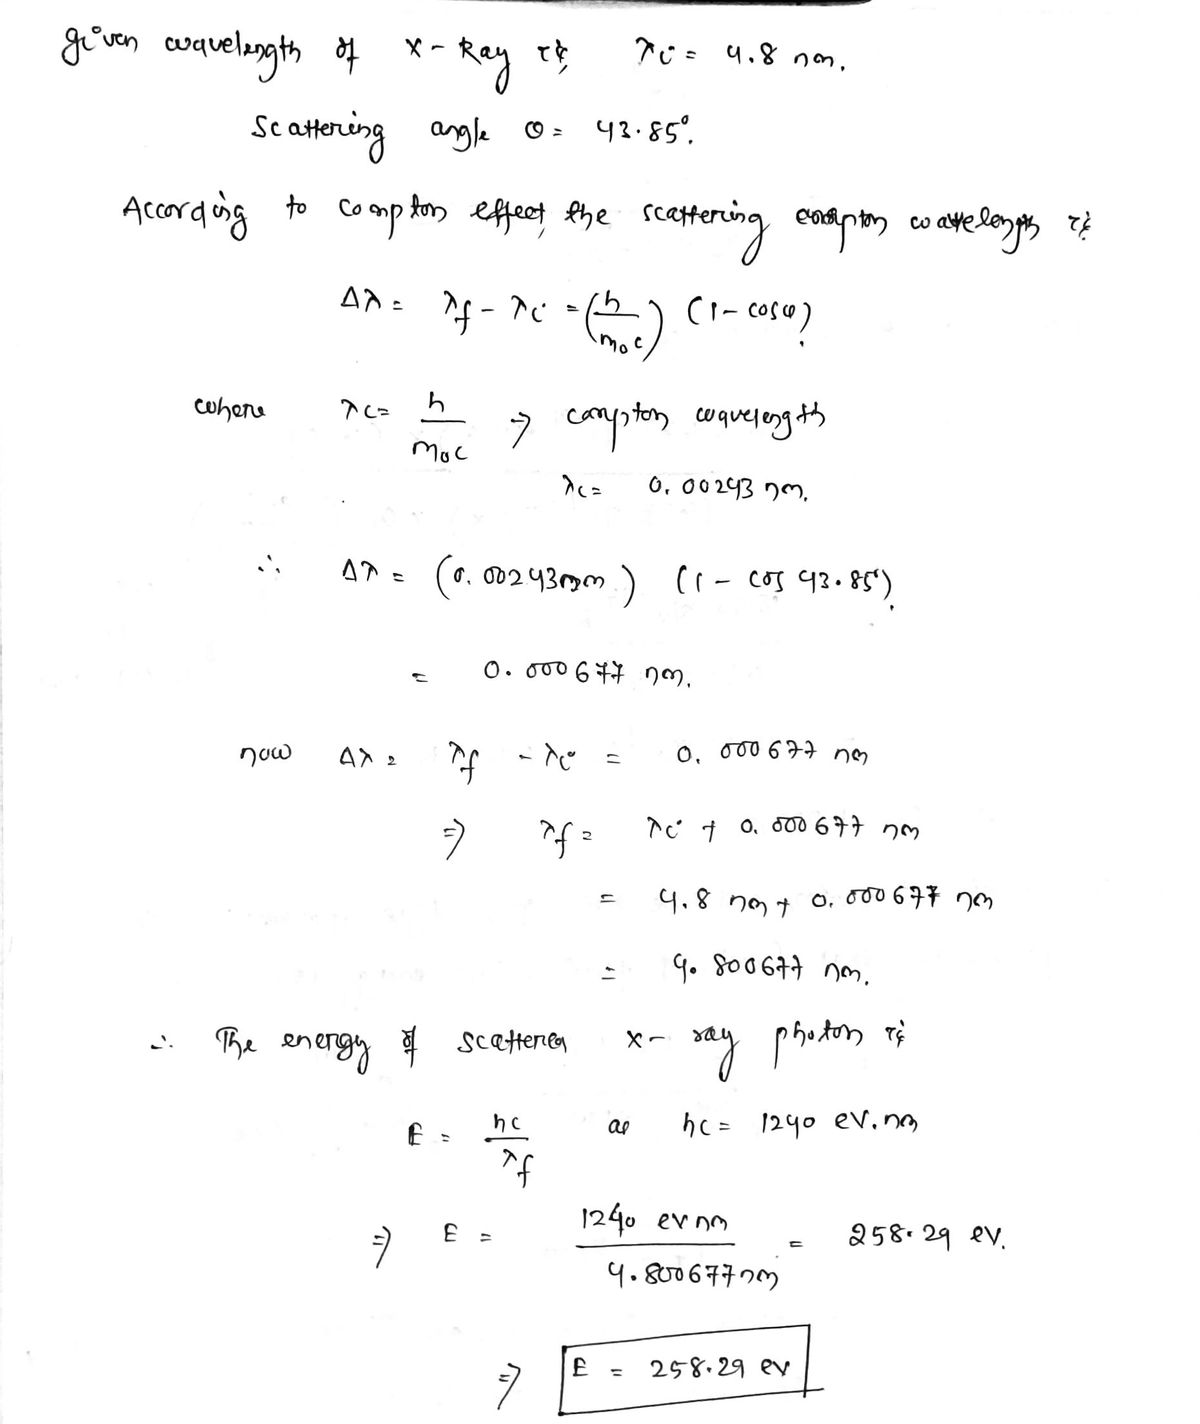 given wavelength of x-Ray is, λi = 4.8 nm.
Scattering angle θ = 43.85°.
According to compton effect, the scattering compton wavelength is
Δλ = λf - λi = (h/m₀c) (1 - cosθ)
where λc = h/m₀c ⇒ compton wavelength
λc = 0.00243 nm.
∴ Δλ = (0.00243nm) (1 - cos 43.85°)
= 0.000677 nm.
now Δλ = λf - λi = 0.000677 nm
⇒ λf = λi + 0.000677 nm
= 4.8 nm + 0.000677 nm
= 4.800677 nm.
∴ The energy of scattered x-ray photon is
E = hc/λf as hc = 1240 eV.nm
⇒ E = 1240 ev nm/4.800677 nm = 258.29 eV.
⇒ E = 258.29 ev